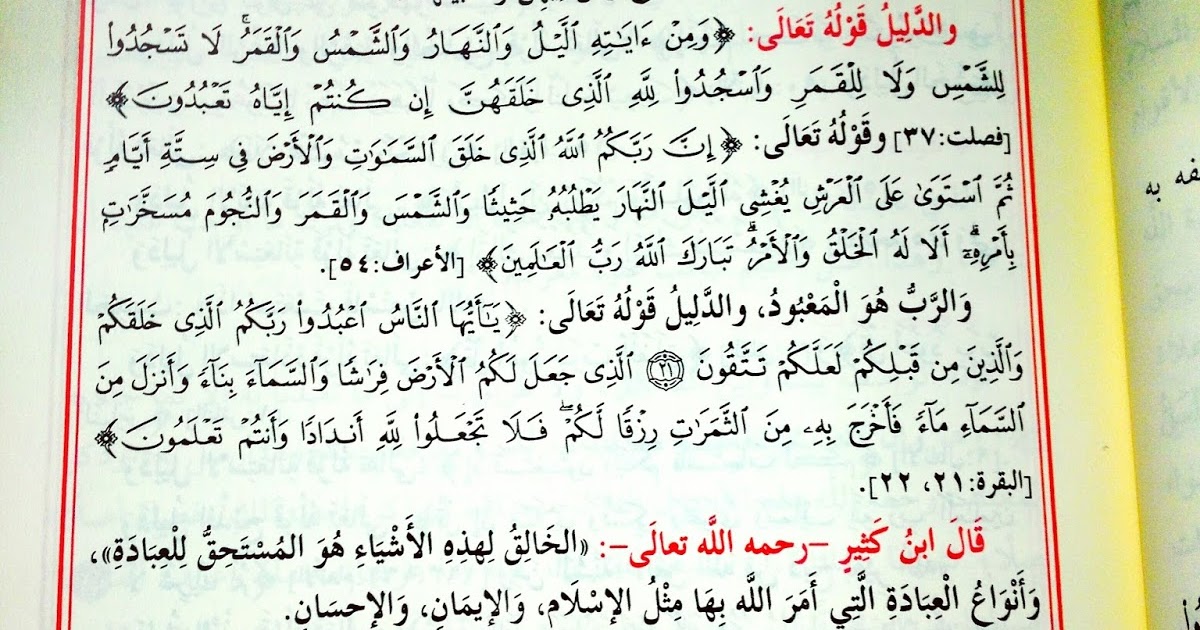 والدَّلِيلُ قَوْلُهُ تَعَالَى: ﴿وَمِنْ ءَايَاتِهِ الَّيْلُ وَالنَّهَارُ وَالشَّمْسُ وَالْقَمَرُ ۚ لَا تَسْجُدُوا۟
لِلشَّمْسِ وَلَا لِلْقَمَرِ وَاسْجُدُوا۟ لِلَّهِ الَّذِى خَلَقَهُنَّ إِن كُنتُمْ إِيَّاهُ تَعْبُدُونَ﴾
[فصلت:٣٧] وقَوْلُهُ تَعَالَى: ﴿إِنَّ رَبَّكُمُ اللَّهُ الَّذِى خَلَقَ السَّمَٰوَٰتِ وَالْأَرْضَ فِى سِتَّةِ أَيَّامٍ
ثُمَّ اسْتَوَىٰ عَلَى الْعَرْشِ يُغْشِى الَّيْلَ النَّهَارَ يَطْلُبُهُۥ حَثِيثًا وَالشَّمْسَ وَالْقَمَرَ وَالنُّجُومَ مُسَخَّرَٰتٍ
بِأَمْرِهِۦٓ ۗ أَلَا لَهُ الْخَلْقُ وَالْأَمْرُ ۗ تَبَارَكَ اللَّهُ رَبُّ الْعَٰلَمِينَ﴾ [الأعراف:٥٤].
وَالرَّبُّ هُوَ الْمَعْبُودُ، والدَّلِيلُ قَوْلُهُ تَعَالَى: ﴿يَٰٓأَيُّهَا النَّاسُ اعْبُدُوا۟ رَبَّكُمُ الَّذِى خَلَقَكُمْ
وَالَّذِينَ مِن قَبْلِكُمْ لَعَلَّكُمْ تَتَّقُونَ ٢١ الَّذِى جَعَلَ لَكُمُ الْأَرْضَ فِرَٰشًا وَالسَّمَآءَ بِنَآءً وَأَنزَلَ مِنَ
السَّمَآءِ مَآءً فَأَخْرَجَ بِهِۦ مِنَ الثَّمَرَٰتِ رِزْقًا لَّكُمْ ۖ فَلَا تَجْعَلُوا۟ لِلَّهِ أَندَادًا وَأَنتُمْ تَعْلَمُونَ﴾
[البقرة:٢١، ٢٢].
قَالَ ابنُ كَثِيرٍ –رحمه الله تعالَى–: «الخَالِقُ لِهذِهِ الأَشْيَاءِ هُوَ المُسْتَحِقُّ لِلْعِبَادَةِ»،
وَأَنْوَاعُ الْعِبَادَةِ الَّتِي أَمَرَ اللَّه بِهَا مِثْلُ الإِسْلَامِ، وَالإِيمَانِ، وَالإِحسَانِ.